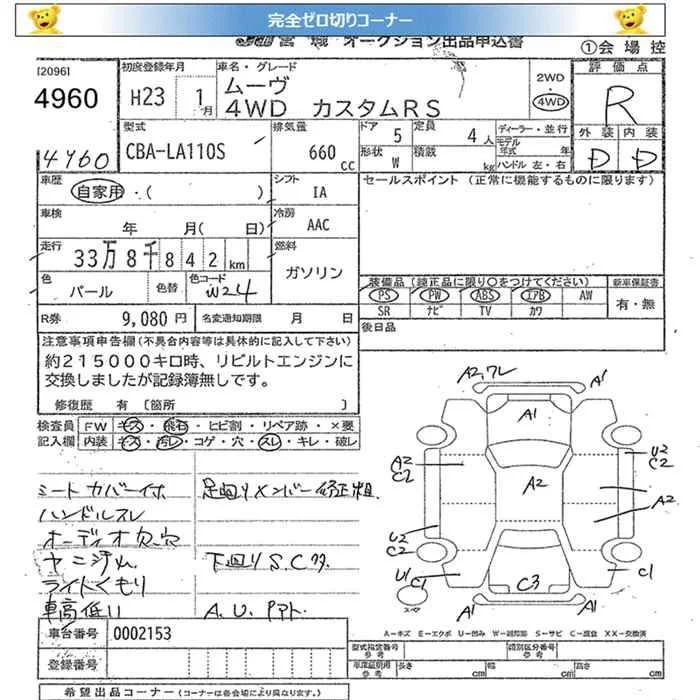 完全ゼロ切りコーナー
オークション出品申込書
①会場控
[2096]
4960
4960
初度登録年月
H23 1月
車名・グレード
ムーヴ
4WD カスタムRS
2WD
・
4WD
評価点
R
外装 内装
D D
型式
CBA-LA110S
排気量
660 cc
ドア 5
定員 4人
形状 W
積載 kg
ディーラー・並行
モデル年式 年
ハンドル 左・右
車歴
自家用・( )
シフト
IA
セールスポイント (正常に機能するものに限ります)
車検
年 月( 日)
冷房
AAC
走行
33万8千842km
燃料
ガソリン
色
パール
色替
色コード
W24
装備品 (純正品に限り○をつけてください)
PS PW ABS エアB AW
SR ナビ TV カワ
新車保証書
有・無
R券 9,080円
名変通知期限 月 日
後日品
注意事項申告欄(不具合内容等は具体的に記入して下さい)
約215000キロ時、リビルトエンジンに
交換しましたが記録簿無しです。
修復歴 有〔箇所 〕
検査員
記入欄
FW キズ・飛石・ヒビ割・リペア跡・×要
内装 キズ・汚レ・コゲ・穴・スレ・キレ・破レ
シートカバー付
ハンドルスレ
オーディオ欠、穴
ヤニ汚れ
ライトくもり
車高低い
足廻りメンバー修正粗
下廻りS.C大
A2,ワレ
A1
A1
A2
C2
A2
U2
C2
U2
C2
A2
U1
C1
C3
C1
A1
A1
A-キズ E-エクボ U-凹み W-補修跡 S-サビ C-腐食 XX-交換済
車台番号 0002153
登録番号
型式指定番号
参考
類別区分番号
参考
長さ 幅 高さ
参考 cm cm cm
希望出品コーナー(コーナーは各会場により異なります。)